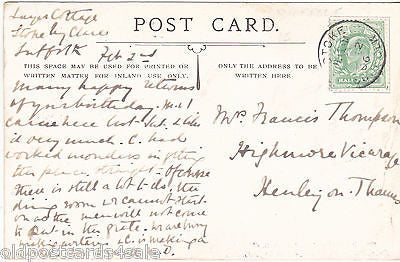 POST CARD.
Cottage
Stoke by Clare
Suffolk Feb 2nd
THIS SPACE MAY BE USED FOR PRINTED OR
WRITTEN MATTER FOR INLAND USE ONLY.
ONLY THE ADDRESS TO BE
WRITTEN HERE.
STOKE
Many happy returns
of your birthday. We
came here last Sat. & like
it very much. C. had
worked wonders in getting
the place straight - Of course
There is still a lot to do, the
dining room we cannot start
on as the men will not come
to put in the grate. We are
is making a
Mrs Francis Thompson
Highmore Vicarage
Henley on Thames
oldpostcards4sale